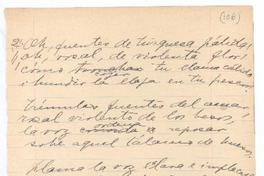 (106)
¡Oh, fuentes de turquesa pálida!
¡oh, rosal, de violenta flor!
cómo tronchar tu llama cálida
i hundir la en tu pecho
Trémulas fuentes del amar
rosal violento de los besos,
la voz a reposar
sobre aquel tálamo de huesos.
Llama la voz clara e implacable